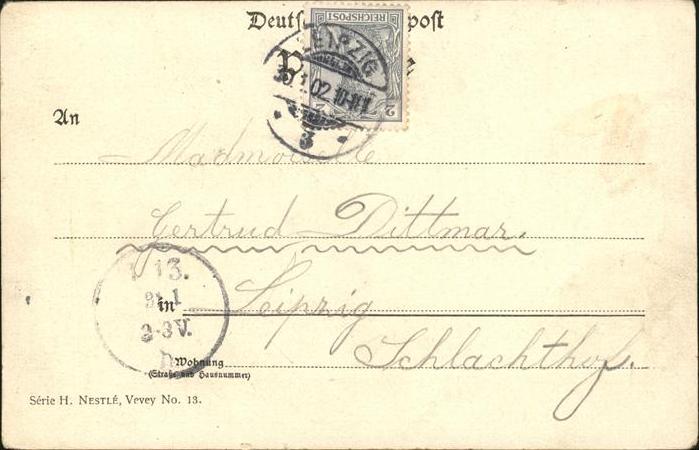 Deutsche Reichspost
REICHSPOST
2 2
LEIPZIG
30.1.02.10-11V
3
An
Mademoiselle
Gertrud Dittmar.
13.
31.1
in Leipzig
Wohnung
(Straße und Hausnummer)
Schlachthof.
Série H. NESTLÉ, Vevey No. 13.